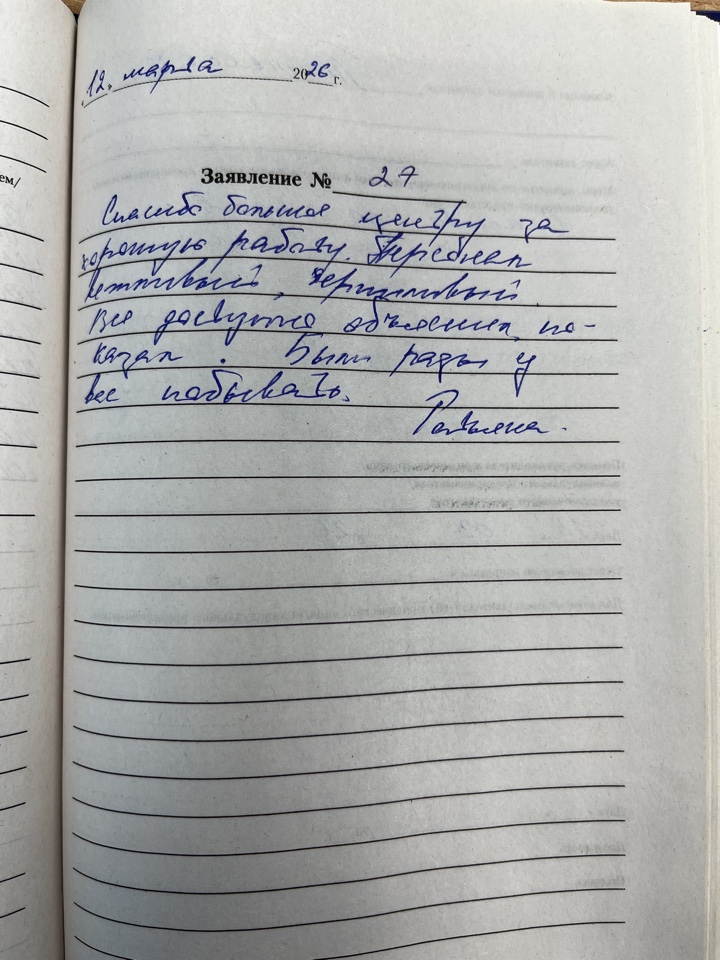 ем/
12. марта 2026 г.
Заявление № 27
Спасибо большое центру за
хорошую работу. Персонал
вежливый,
Все доступно объяснил, по-
казал. Были рады у
вас побывать.
Татьяна.